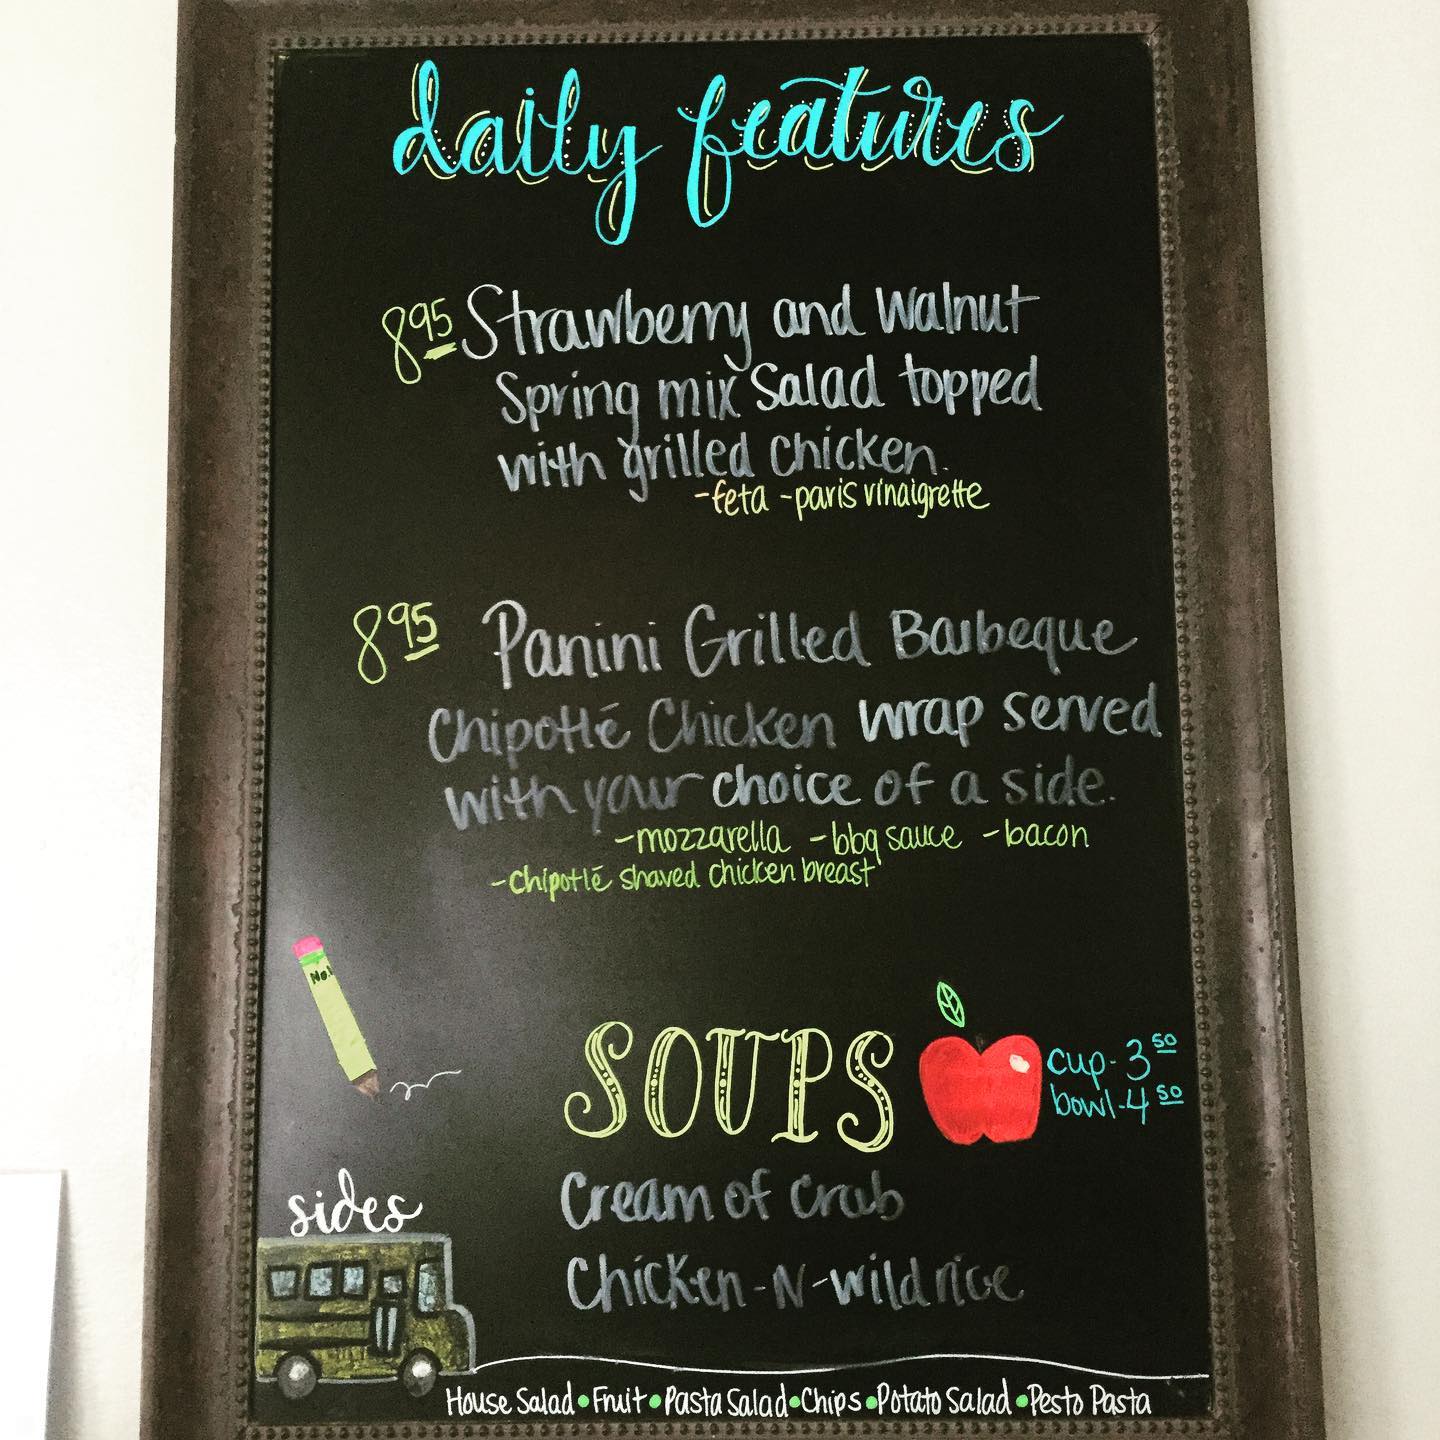 daily features
8 95 Strawberry and Walnut
Spring mix Salad topped
with grilled chicken.
-feta -paris vinaigrette
8 95 Panini Grilled Barbeque
Chipotlé Chicken wrap served
with your choice of a side.
-mozzarella -bbq sauce -bacon
-chipotlé shaved chicken breast
No.1
SOUPS
cup-3 50
bowl-4 50
Cream of Crab
Chicken-N-wild rice
sides
House Salad • Fruit • Pasta Salad • Chips • Potato Salad • Pesto Pasta